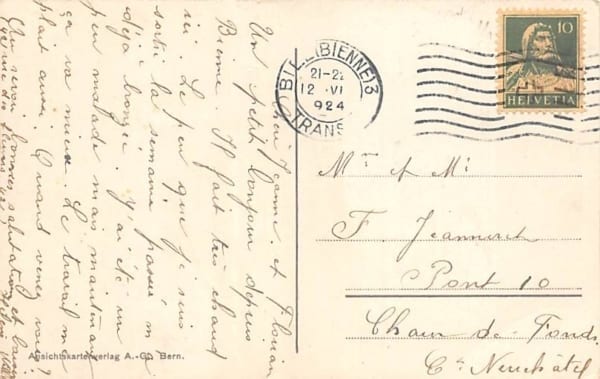 Chère Jeanne et Florian
Un petit bonjour depuis
Bienne. Il fait très chaud
ici. Le peu que je suis
sortie la semaine passée m'a
déjà bronzé. J'ai été un
peu malade mais maintenant
ça va mieux. Le travail me
plait aussi. Quand venez vous?
Au revoir bonnes salutations et baisers
BIEL (BIENNE) 3
21-22
12 VI
924
TRANS
10
HELVETIA
Mr & Me
F. Jeanneret
Pont 10
Chaux-de-Fonds
Ct Neuchâtel
Ansichtskartenverlag A.-G. Bern.